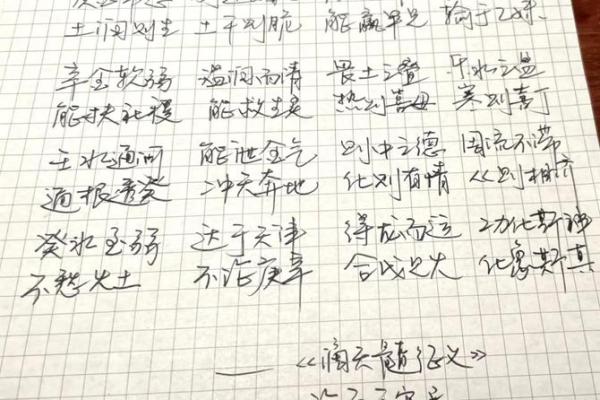 土润则生 土干则脆 能赢甲兄 输于乙妹
辛金软弱 温润而清 畏土之叠 乐水之盈
能扶社稷 能救生灵 热则喜母 寒则喜丁
壬水通河 能泄金气 刚中之德 周流不滞
通根透癸 冲天奔地 化则有情 从则相济
癸水至弱 达于天津 得龙而运 功化斯神
不愁火土 不论庚辛 合戊见火 化象斯真
——《滴天髓征义》